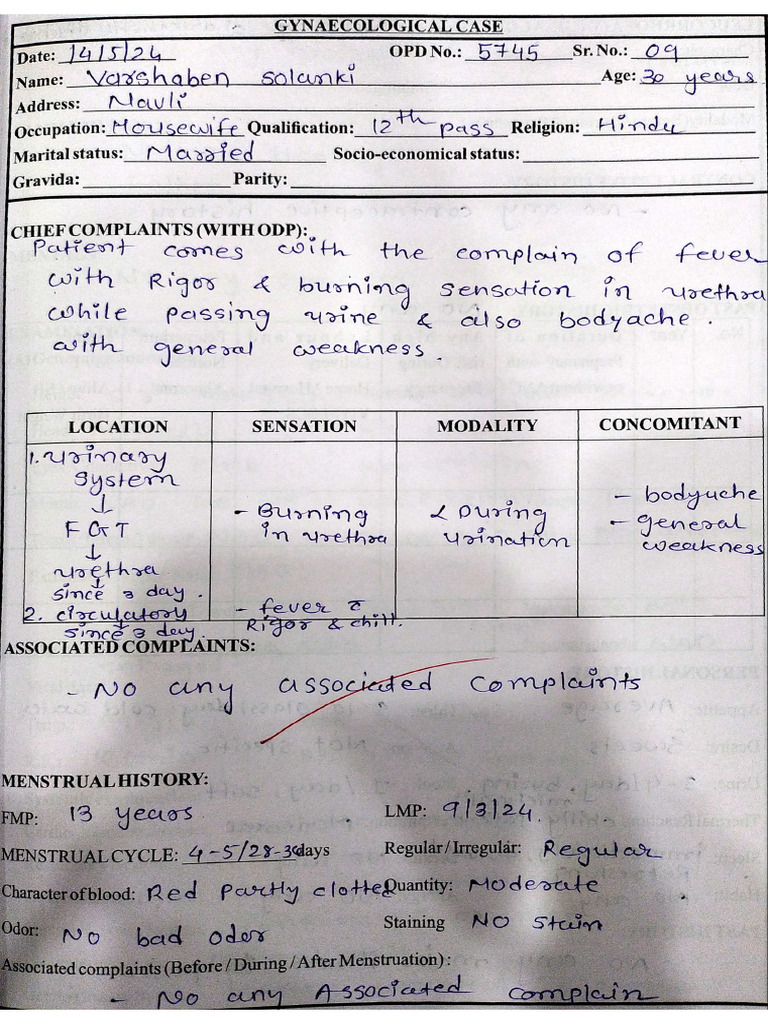 GYNAECOLOGICAL CASE
Date: 14/5/24 OPD No.: 5745 Sr. No.: 09
Name: Varshaben Solanki Age: 30 years
Address: Navli
Occupation: Housewife Qualification: 12th pass Religion: Hindu
Marital status: Married Socio-economical status:
Gravida: Parity:
CHIEF COMPLAINTS (WITH ODP):
Patient comes with the complain of fever
with Rigor & burning sensation in urethra
while passing urine & also bodyache.
with general weakness.
LOCATION SENSATION MODALITY CONCOMITANT
1. urinary
system
↓
FGT
↓
urethra
since 3 day.
- Burning
in urethra
< During
urination
- bodyache
- general
weakness
2. circulatory
since 3 day.
- fever c̄
Rigor & chill.
ASSOCIATED COMPLAINTS:
- No any associated complaints
MENSTRUAL HISTORY:
FMP: 13 years LMP: 9/3/24.
MENSTRUAL CYCLE: 4-5/28-30 days Regular / Irregular: Regular
Character of blood: Red Partly clotted Quantity: Moderate
Odor: No bad odor Staining No stain
Associated complaints (Before / During / After Menstruation) :
- No any Associated complain